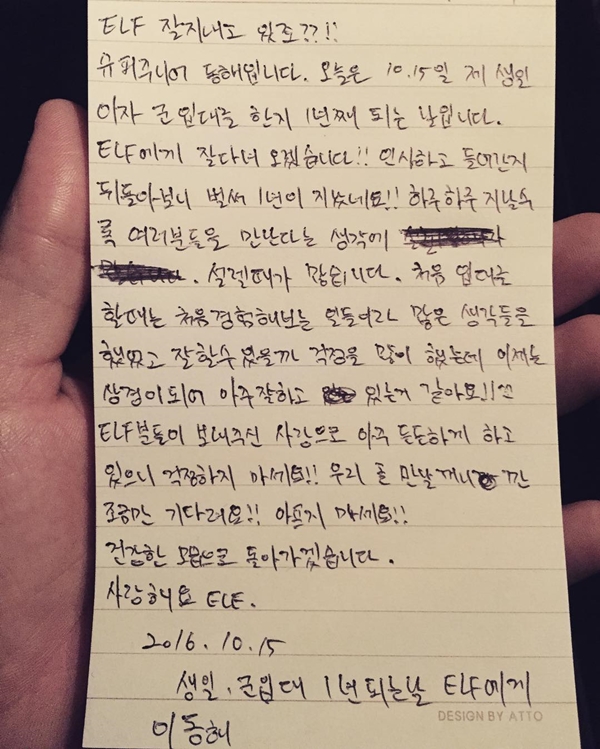 ELF 잘지내고 있죠??!!
슈퍼주니어 동해입니다. 오늘은 10.15일 제 생일
이자 군입대를 한지 1년째 되는 날입니다.
ELF에게 잘다녀 오겠습니다!! 인사하고 들어간지
뒤돌아보니 벌써 1년이 지났네요!! 하루하루 지날수
록 여러분들을 만난다는 생각에
. 설렐때가 많습니다. 처음 입대를
할때는 처음경험해보는 일들이라 많은 생각들을
했었고 잘할수 있을까 걱정을 많이 했는데 이제는
상경이되어 아주잘하고 있는거 같아요!!
ELF분들이 보내주신 사랑으로 아주 든든하게 하고
있으니 걱정하지 마세요!! 우리 곧 만날꺼니깐
조금만 기다려요!! 아프지 마세요!!
건강한 모습으로 돌아가겠습니다.
사랑해요 ELF.
2016.10.15
생일, 군입대 1년되는날 ELF에게
이동해
DESIGN BY ATTO